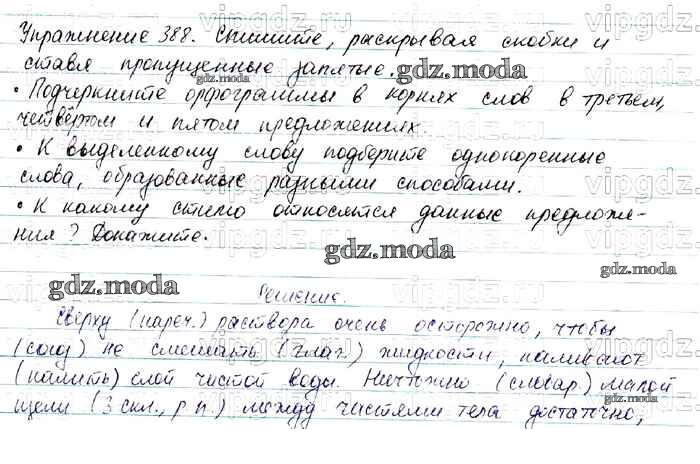 Упражнение 388. Спишите, раскрывая скобки и
ставя пропущенные запятые.
• Подчеркните орфограммы в корнях слов в третьем,
четвёртом и пятом предложениях.
• К выделенному слову подберите однокоренные
слова, образованные разными способами.
• К какому стилю относятся данные предложе-
ния? Докажите.
Решение.
Сверху (нареч.) раствора очень осторожно, чтобы
(союз) не смешать (глаг.) жидкости, наливают
(налить) слой чистой воды. Ничтожно (словар.) малой
щели (3 скл., р.п.) между частями тела достаточно,